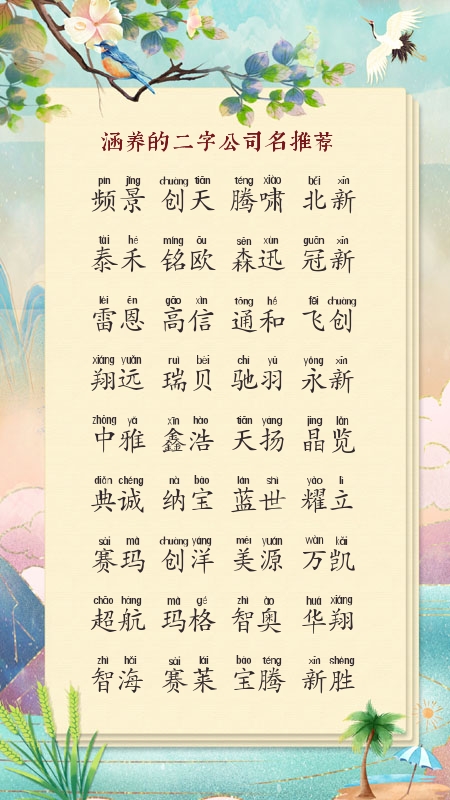 涵养的二字公司名推荐
pín jǐng chuàng tiān téng xiào běi xīn
频景 创天 腾啸 北新
tài hé míng ōu sēn xùn guān xīn
泰禾 铭欧 森迅 冠新
léi ēn gāo xìn tōng hé fēi chuàng
雷恩 高信 通和 飞创
xiáng yuǎn ruì bèi chí yǔ yǒng xīn
翔远 瑞贝 驰羽 永新
zhōng yǎ xīn hào tiān yáng jīng lǎn
中雅 鑫浩 天扬 晶览
diǎn chéng nà bǎo lán shì yào lì
典诚 纳宝 蓝世 耀立
sài mǎ chuàng yáng měi yuán wàn kǎi
赛玛 创洋 美源 万凯
chāo háng mǎ gé zhì ào huá xiáng
超航 玛格 智奥 华翔
zhì hǎi sài lái bǎo téng xīn shèng
智海 赛莱 宝腾 新胜